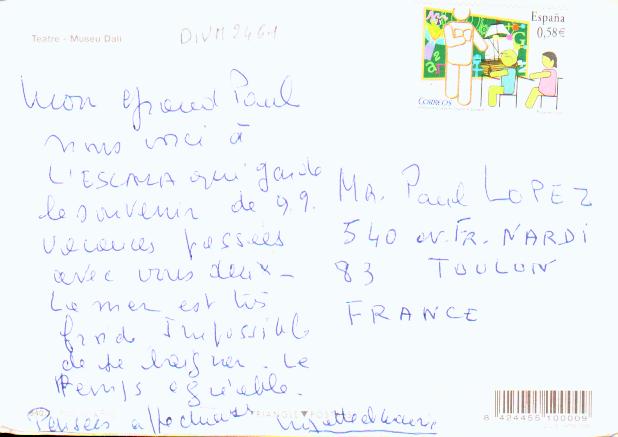 Teatre - Museu Dalí
DIVM 2461
España
0,58€
CORREOS
Mon grand Paul
nous voici à
L'ESCALA qui garde
le souvenir de q.q.
vacances passées
avec vous deux -
La mer est très
froide Impossible
de se baigner. Le
temps agréable.
Pensées affectueuses
MR. Paul LOPEZ
540 AV. FR. NARDI
83 TOULON
FRANCE
TRIANGLE POST
8 424455 100009